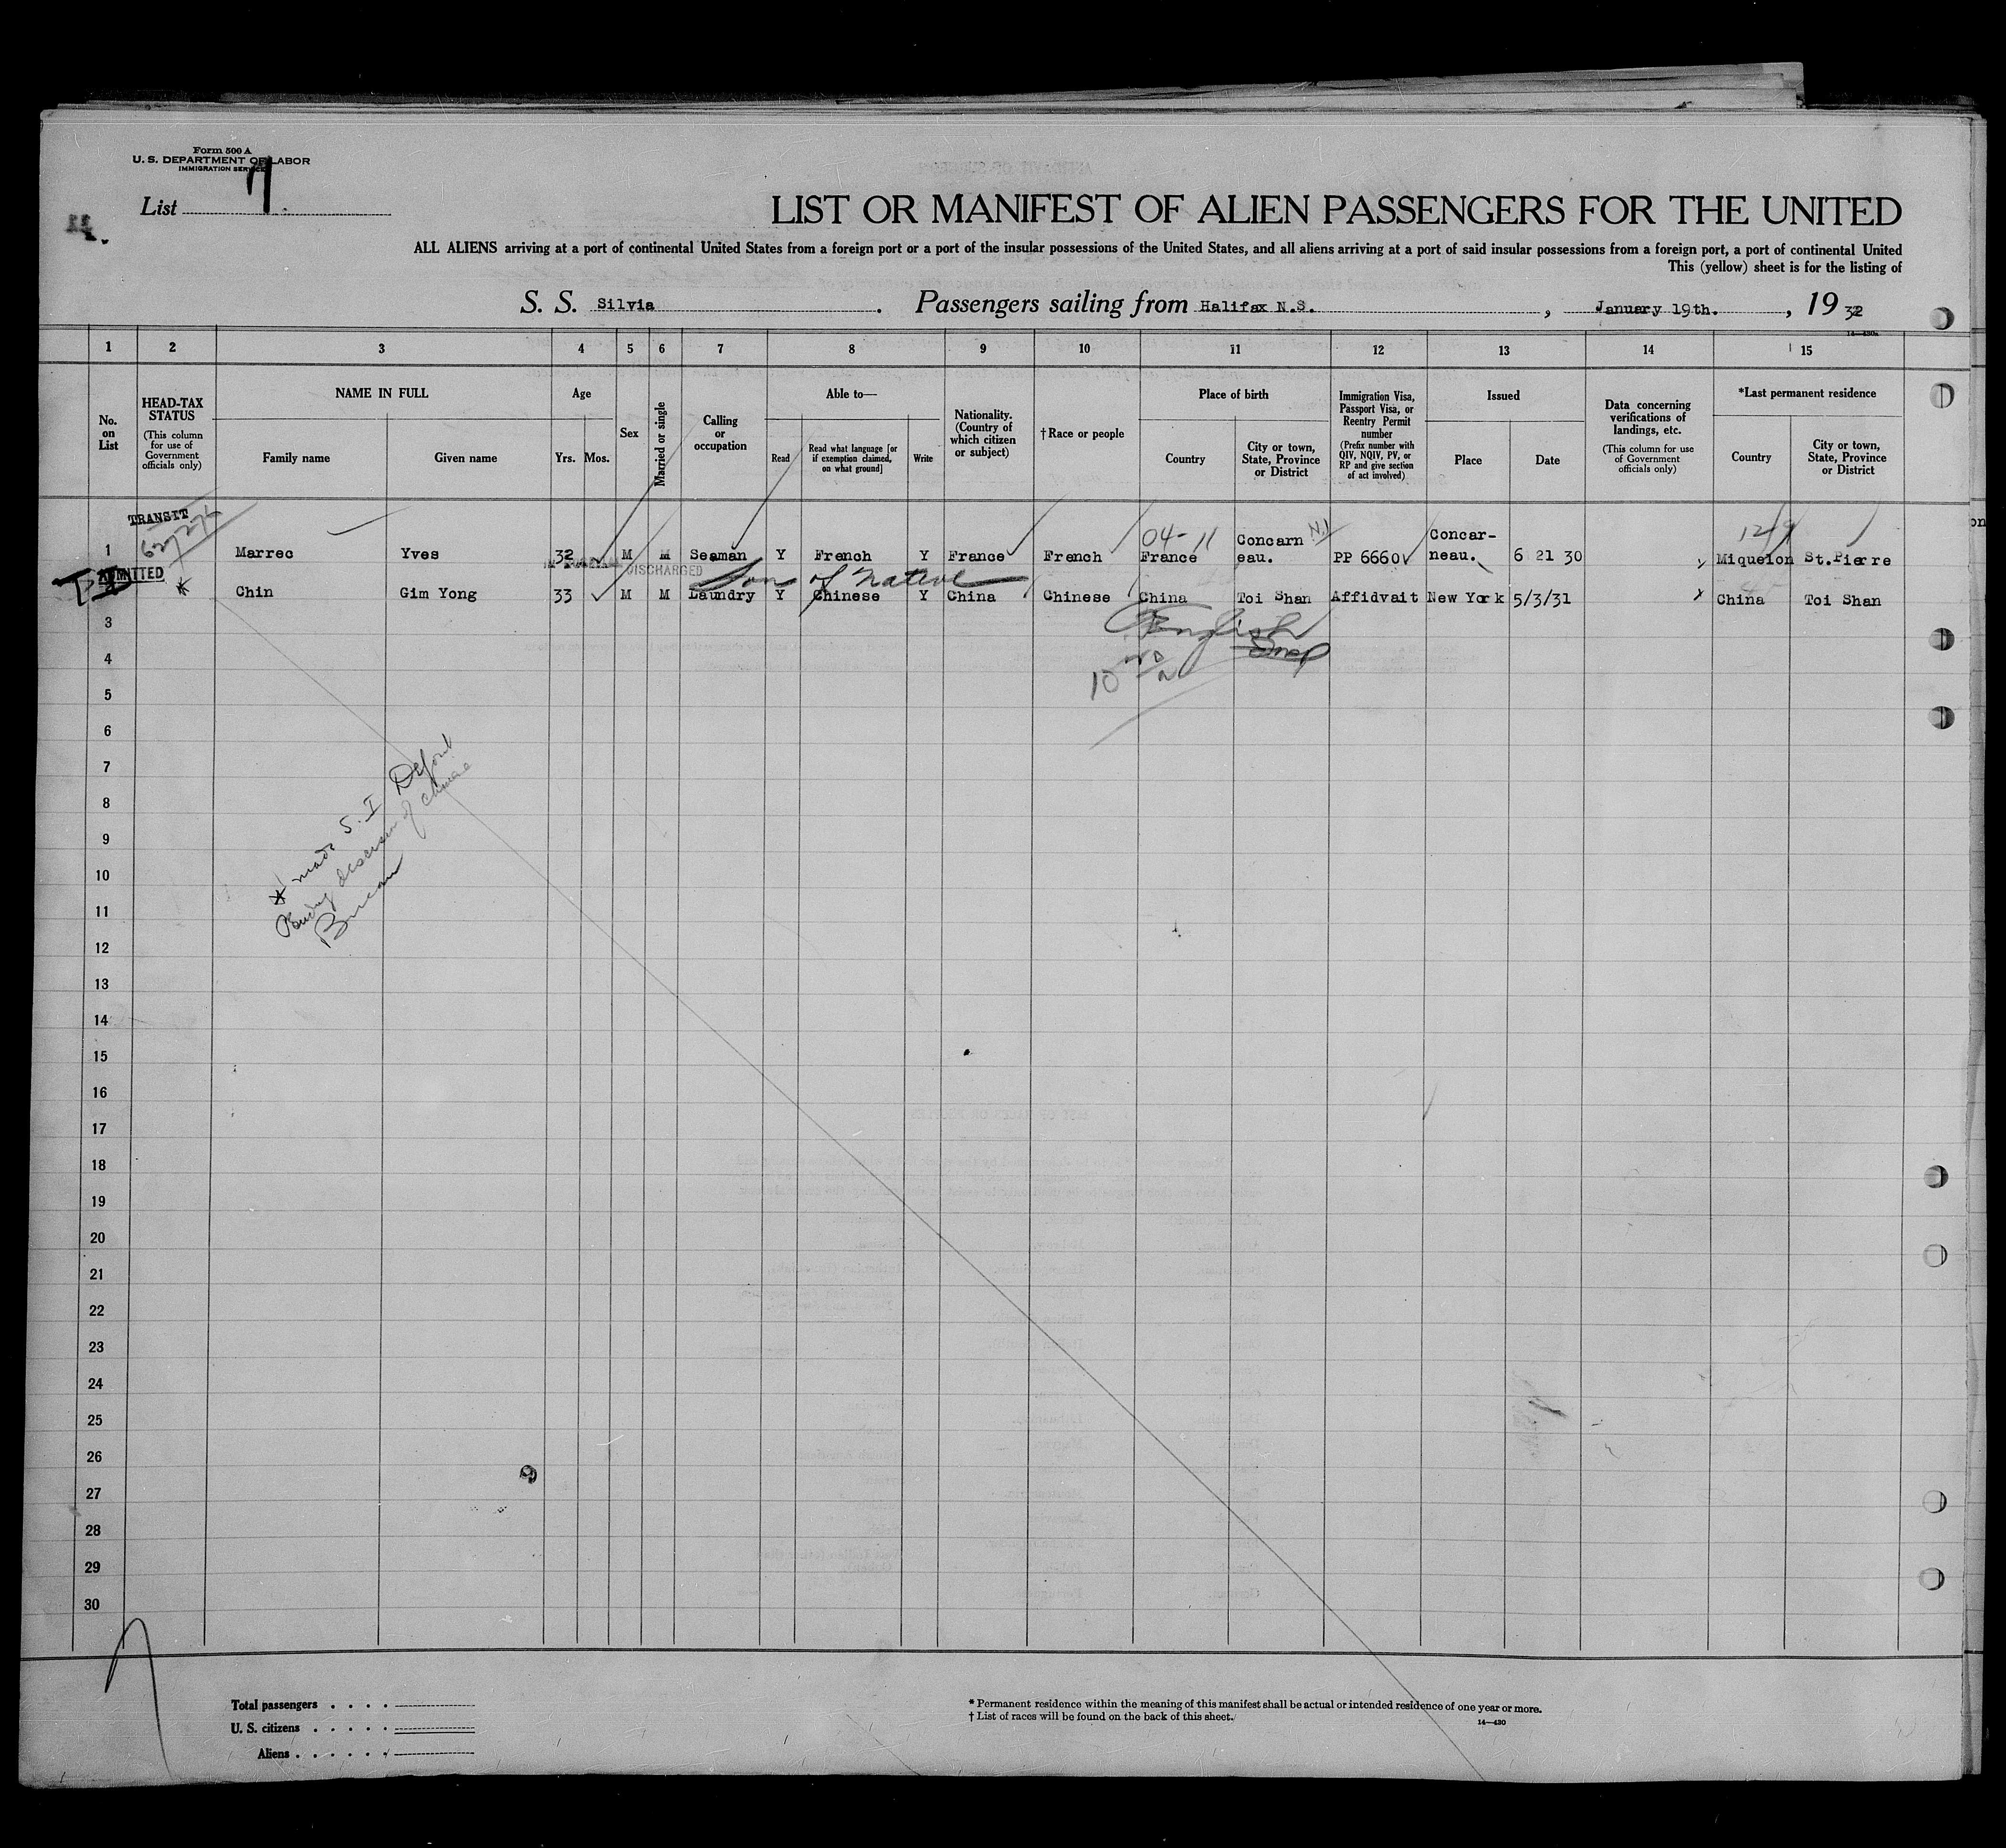 Form 500 A
U. S. DEPARTMENT OF LABOR
IMMIGRATION SERVICE
List 7
LIST OR MANIFEST OF ALIEN PASSENGERS FOR THE UNITED
ALL ALIENS arriving at a port of continental United States from a foreign port or a port of the insular possessions of the United States, and all aliens arriving at a port of said insular possessions from a foreign port, a port of continental United
This (yellow) sheet is for the listing of
S. S. Silvia. Passengers sailing from Halifax N.S., January 19th., 1932
14—430a
1 2 3 4 5 6 7 8 9 10 11 12 13 14 15
No. on List
HEAD-TAX STATUS
(This column for use of Government officials only)
NAME IN FULL
Family name
Given name
Age
Yrs. Mos.
Sex
Married or single
Calling or occupation
Able to—
Read
Read what language [or if exemption claimed, on what ground]
Write
Nationality. (Country of which citizen or subject)
†Race or people
Place of birth
Country
City or town, State, Province or District
Immigration Visa, Passport Visa, or Reentry Permit number
(Prefix number with QIV, NQIV, PV, or RP and give section of act involved)
Issued
Place
Date
Data concerning verifications of landings, etc.
(This column for use of Government officials only)
*Last permanent residence
Country
City or town, State, Province or District
TRANSIT
04-11
1 Marrec Yves 32 M M Seaman Y French Y France French France Concarneau. PP 6660 Concar-neau. 6 21 30 Miquelon St.Pierre
ADMITTED
DISCHARGED
Son of Native
* Chin Gim Yong 33 M M Laundry Y Chinese Y China Chinese China Toi Shan Affidvait New York 5/3/31 China Toi Shan
English
3
4
5
6
7
8
9
10
11
12
13
14
15
16
17
18
19
20
21
22
23
24
25
26
27
28
29
30
* made S. I
Bureau
Total passengers
U. S. citizens
Aliens
* Permanent residence within the meaning of this manifest shall be actual or intended residence of one year or more.
† List of races will be found on the back of this sheet.
14—430